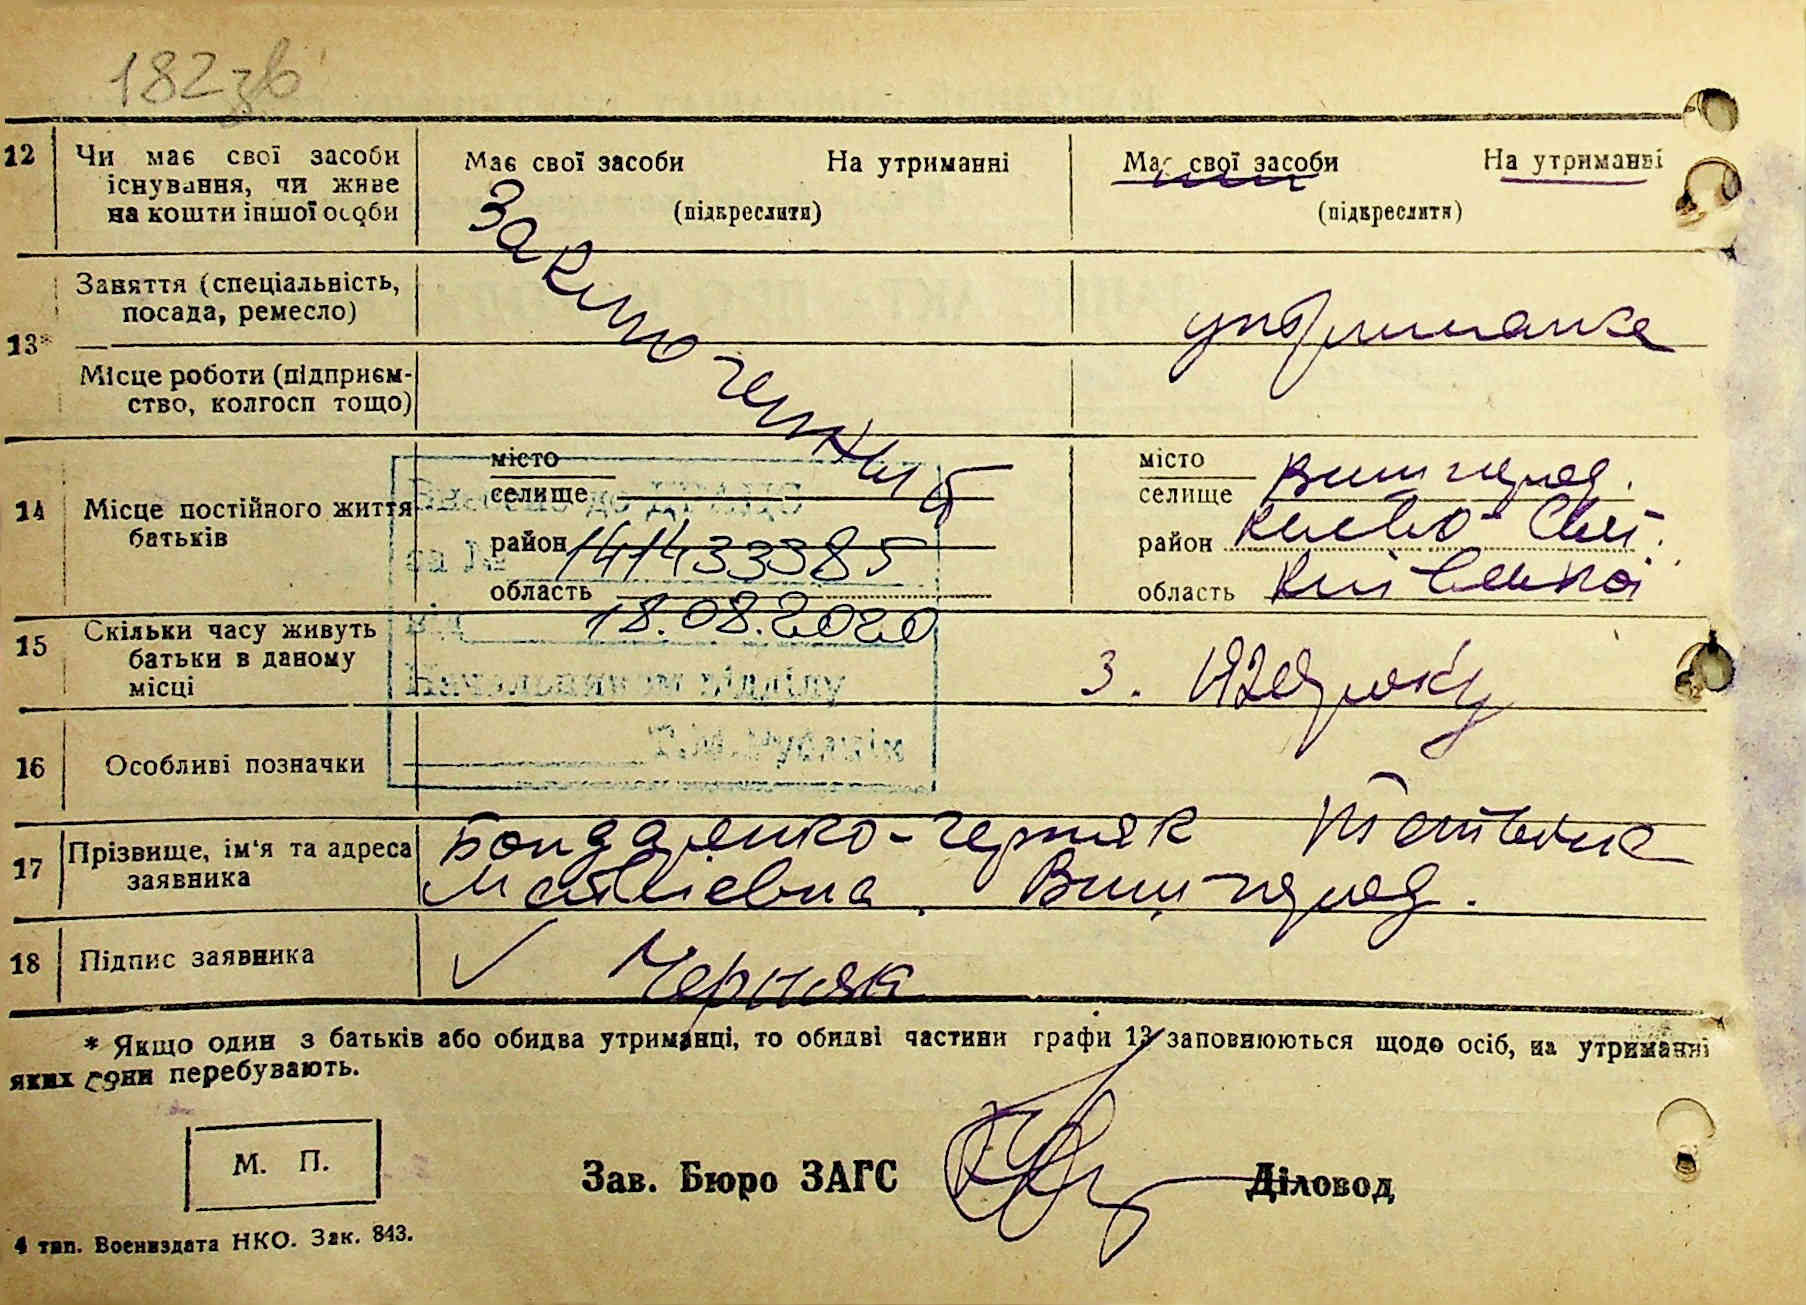 182зв
12 Чи має свої засоби існування, чи живе на кошти іншої особи
Має свої засоби На утриманні
(підкреслити)
Має свої засоби На утриманні
(підкреслити)
13* Заняття (спеціальність, посада, ремесло)
утриманка
Місце роботи (підприєм-
ство, колгосп тощо)
14 Місце постійного життя
батьків
місто
селище
район 141433385
область
18.08.2020
місто Вишгород.
селище
район Києво-Свят.
область Київської
15 Скільки часу живуть
батьки в даному
місці
16 Особливі позначки
17 Прізвище, ім'я та адреса
заявника
Бондаренко-Черняк Тетяна
Матвіевна. Вишгород.
18 Підпис заявника
Черняк
* Якщо один з батьків або обидва утриманці, то обидві частини графи 13 заповнюються щодо осіб, на утриманні
яких вони перебувають.
М. П.
Зав. Бюро ЗАГС Діловод
4 тип. Воениздата НКО. Зак. 843.